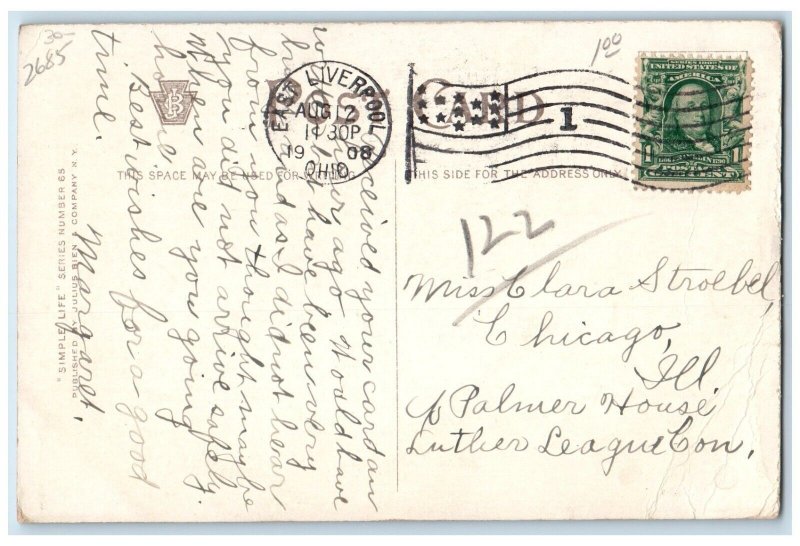 30-
2685
100
POST CARD
THIS SPACE MAY BE USED FOR WRITING
THIS SIDE FOR THE ADDRESS ONLY
EAST LIVERPOOL
AUG 2
11 30P
19 08
OHIO
1
SERIES 1902
UNITED STATES OF
AMERICA
1 1
POSTAGE
ONE CENT
122
Miss Clara Stroebel,
Chicago,
Ill.
c/o Palmer House
Luther League Con.
received your card an
hour ago. Would have
but have been very
and as I did not hear
from you thought maybe
you did not arrive safely.
When are you going
home
Best wishes for a good
time.
Margaret.
"SIMPLE LIFE" SERIES NUMBER 65
PUBLISHED BY JULIUS BIEN & COMPANY N.Y.
JB